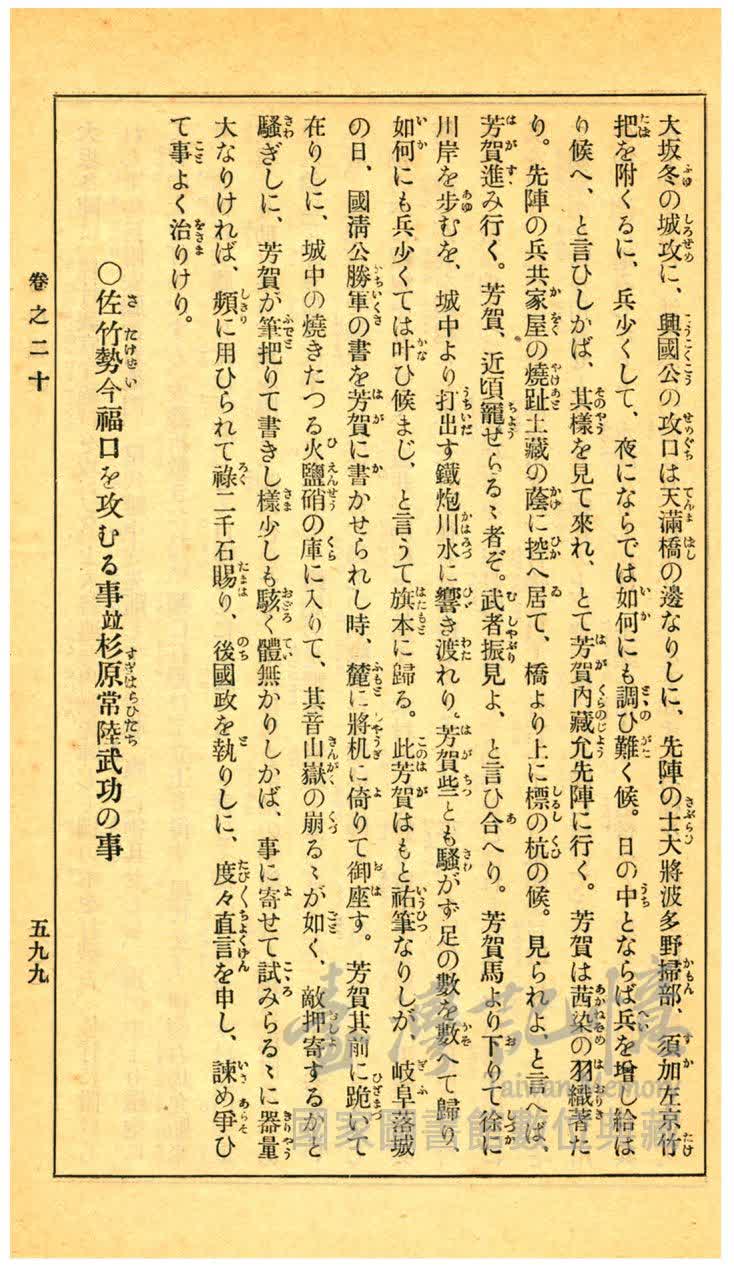 大坂冬の城攻に、興國公の攻口は天滿橋の邊なりしに、先陣の士大將波多野掃部、須加左京竹
把を附くるに、兵少くして、夜にならでは如何にも調ひ難く候。日の中とならば兵を增し給は
り候へ、と言ひしかば、其樣を見て來れ、とて芳賀內藏允先陣に行く。芳賀は茜染の羽織著た
り。先陣の兵共家屋の燒趾土藏の蔭に控へ居て、橋より上に標の杭の候。見られよ、と言へば、
芳賀進み行く。芳賀、近頃寵せらるゝ者ぞ。武者振見よ、と言ひ合へり。芳賀馬より下りて徐に
川岸を步むを、城中より打出す鐵炮川水に響き渡れり。芳賀些とも騷がず足の數を數へて歸り、
如何にも兵少くては叶ひ候まじ、と言うて旗本に歸る。此芳賀はもと祐筆なりしが、岐阜落城
の日、國淸公勝軍の書を芳賀に書かせられし時、麓に將机に倚りて御座す。芳賀其前に跪いて
在りしに、城中の燒きたつる火鹽硝の庫に入りて、其音山嶽の崩るゝが如く、敵押寄するかと
騷ぎしに、芳賀が筆把りて書きし樣少しも駭く體無かりしかば、事に寄せて試みらるゝに器量
大なりければ、頻に用ひられて祿二千石賜り、後國政を執りしに、度々直言を申し、諫め爭ひ
て事よく治りけり。
〇佐竹勢今福口を攻むる事竝杉原常陸武功の事
卷之二十
五九九
臺灣記憶
Taiwan Memory
國家圖書館數位典藏